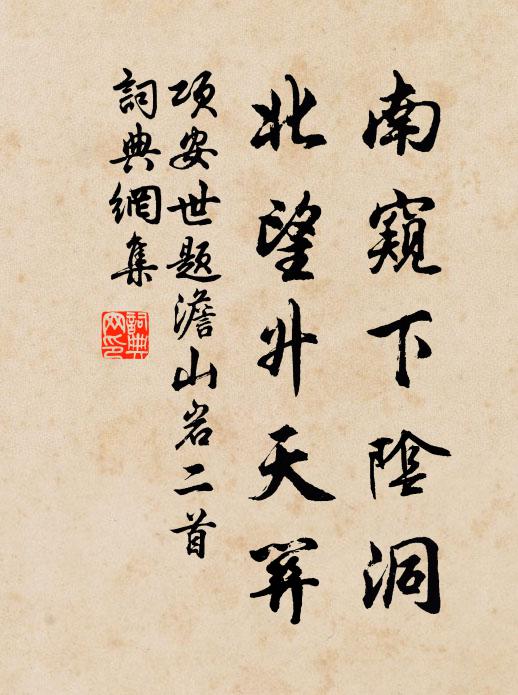 南窺下陰洞
北望升天羿
项安世题澹山岩二首
詞典網集
詞典
网印